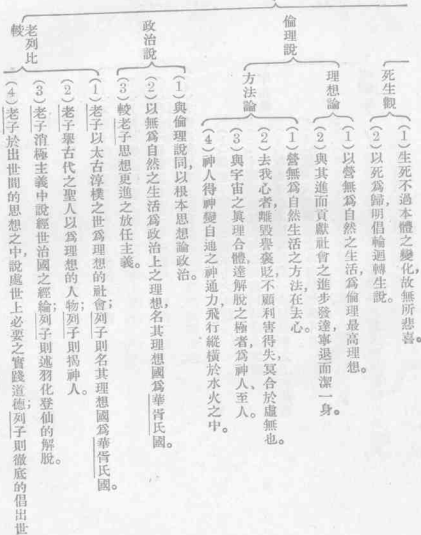 死生觀
(1)生死不過本體之變化,故無所悲喜。
(2)以死爲歸,明倡輪迴轉生說。
倫理說
理想論
(1)以營無爲自然之生活,爲倫理最高理想。
(2)與其進而貢獻社會之進步發達寧退而潔一身。
方法論
(1)營無爲自然生活之方法,在去心。
(2)去我心者,離毀譽褒貶,不顧利害得失,冥合於虛無也。
(3)與宇宙之眞理合體,達解脫之極者,爲神人、至人。
(4)神人得神變自通之神通力,飛行縱橫於水火之中。
政治說
(1)與倫理說同,以根本思想論政治。
(2)以無爲自然之生活爲政治上之理想,名其理想國爲華胥氏國。
(3)較老子思想更進之放任主義。
老列比較
(1)老子以太古淳樸之世爲理想的社會;列子則名其理想國爲華胥氏國。
(2)老子舉古代之聖人以爲理想的人物;列子則揭神人。
(3)老子消極主義中說經世治國之經綸;列子則述羽化登仙的解脫。
(4)老子於出世間的思想之中,說處世上必要之實踐道德;列子則徹底的倡出世